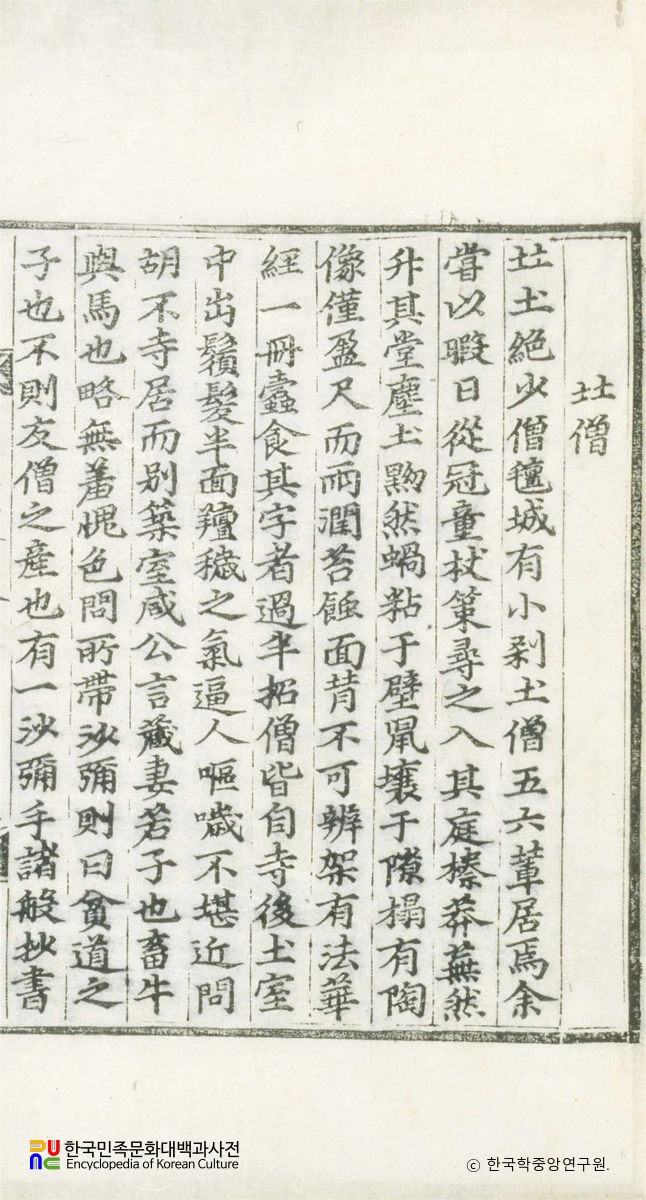 北僧
北土絶少僧氊城有小刹土僧五六輩居焉余
嘗以暇日從冠童杖策尋之入其庭榛莽蕪然
升其堂塵土黝然蝸粘于壁鼠壤于隙榻有陶
像僅盈尺而雨潤苔蝕面背不可辨架有法華
経一冊蠹食其字者過半招僧皆自寺後土室
中出鬚髮半面羶穢之氣逼人嘔噦不堪近問
胡不寺居而别築室咸公言藏妻若子也畜牛
與馬也略無羞愧色問所帶沙彌則曰貧道之
子也不則友僧之産也有一沙彌手諸般抄書
한국민족문화대백과사전
Encyclopedia of Korean Culture
ⓒ 한국학중앙연구원.